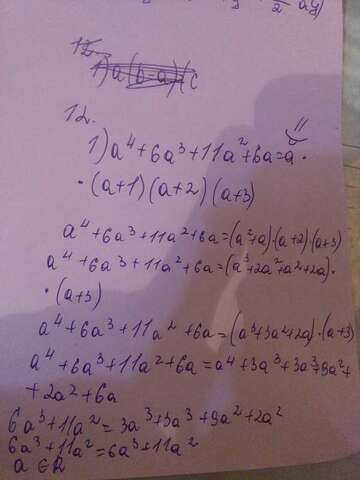 12.
1) a(b-a)(c
12.
1) a⁴+6a³+11a²+6a=a·
·(a+1)(a+2)(a+3)
a⁴+6a³+11a²+6a=(a²+a)·(a+2)(a+3)
a⁴+6a³+11a²+6a=(a³+2a²+a²+2a)·
·(a+3)
a⁴+6a³+11a²+6a=(a³+3a²+2a)·(a+3)
a⁴+6a³+11a²+6a=a⁴+3a³+3a³+9a²+
+2a²+6a
6a³+11a²=3a³+3a³+9a²+2a²
6a³+11a²=6a³+11a²
a∈R